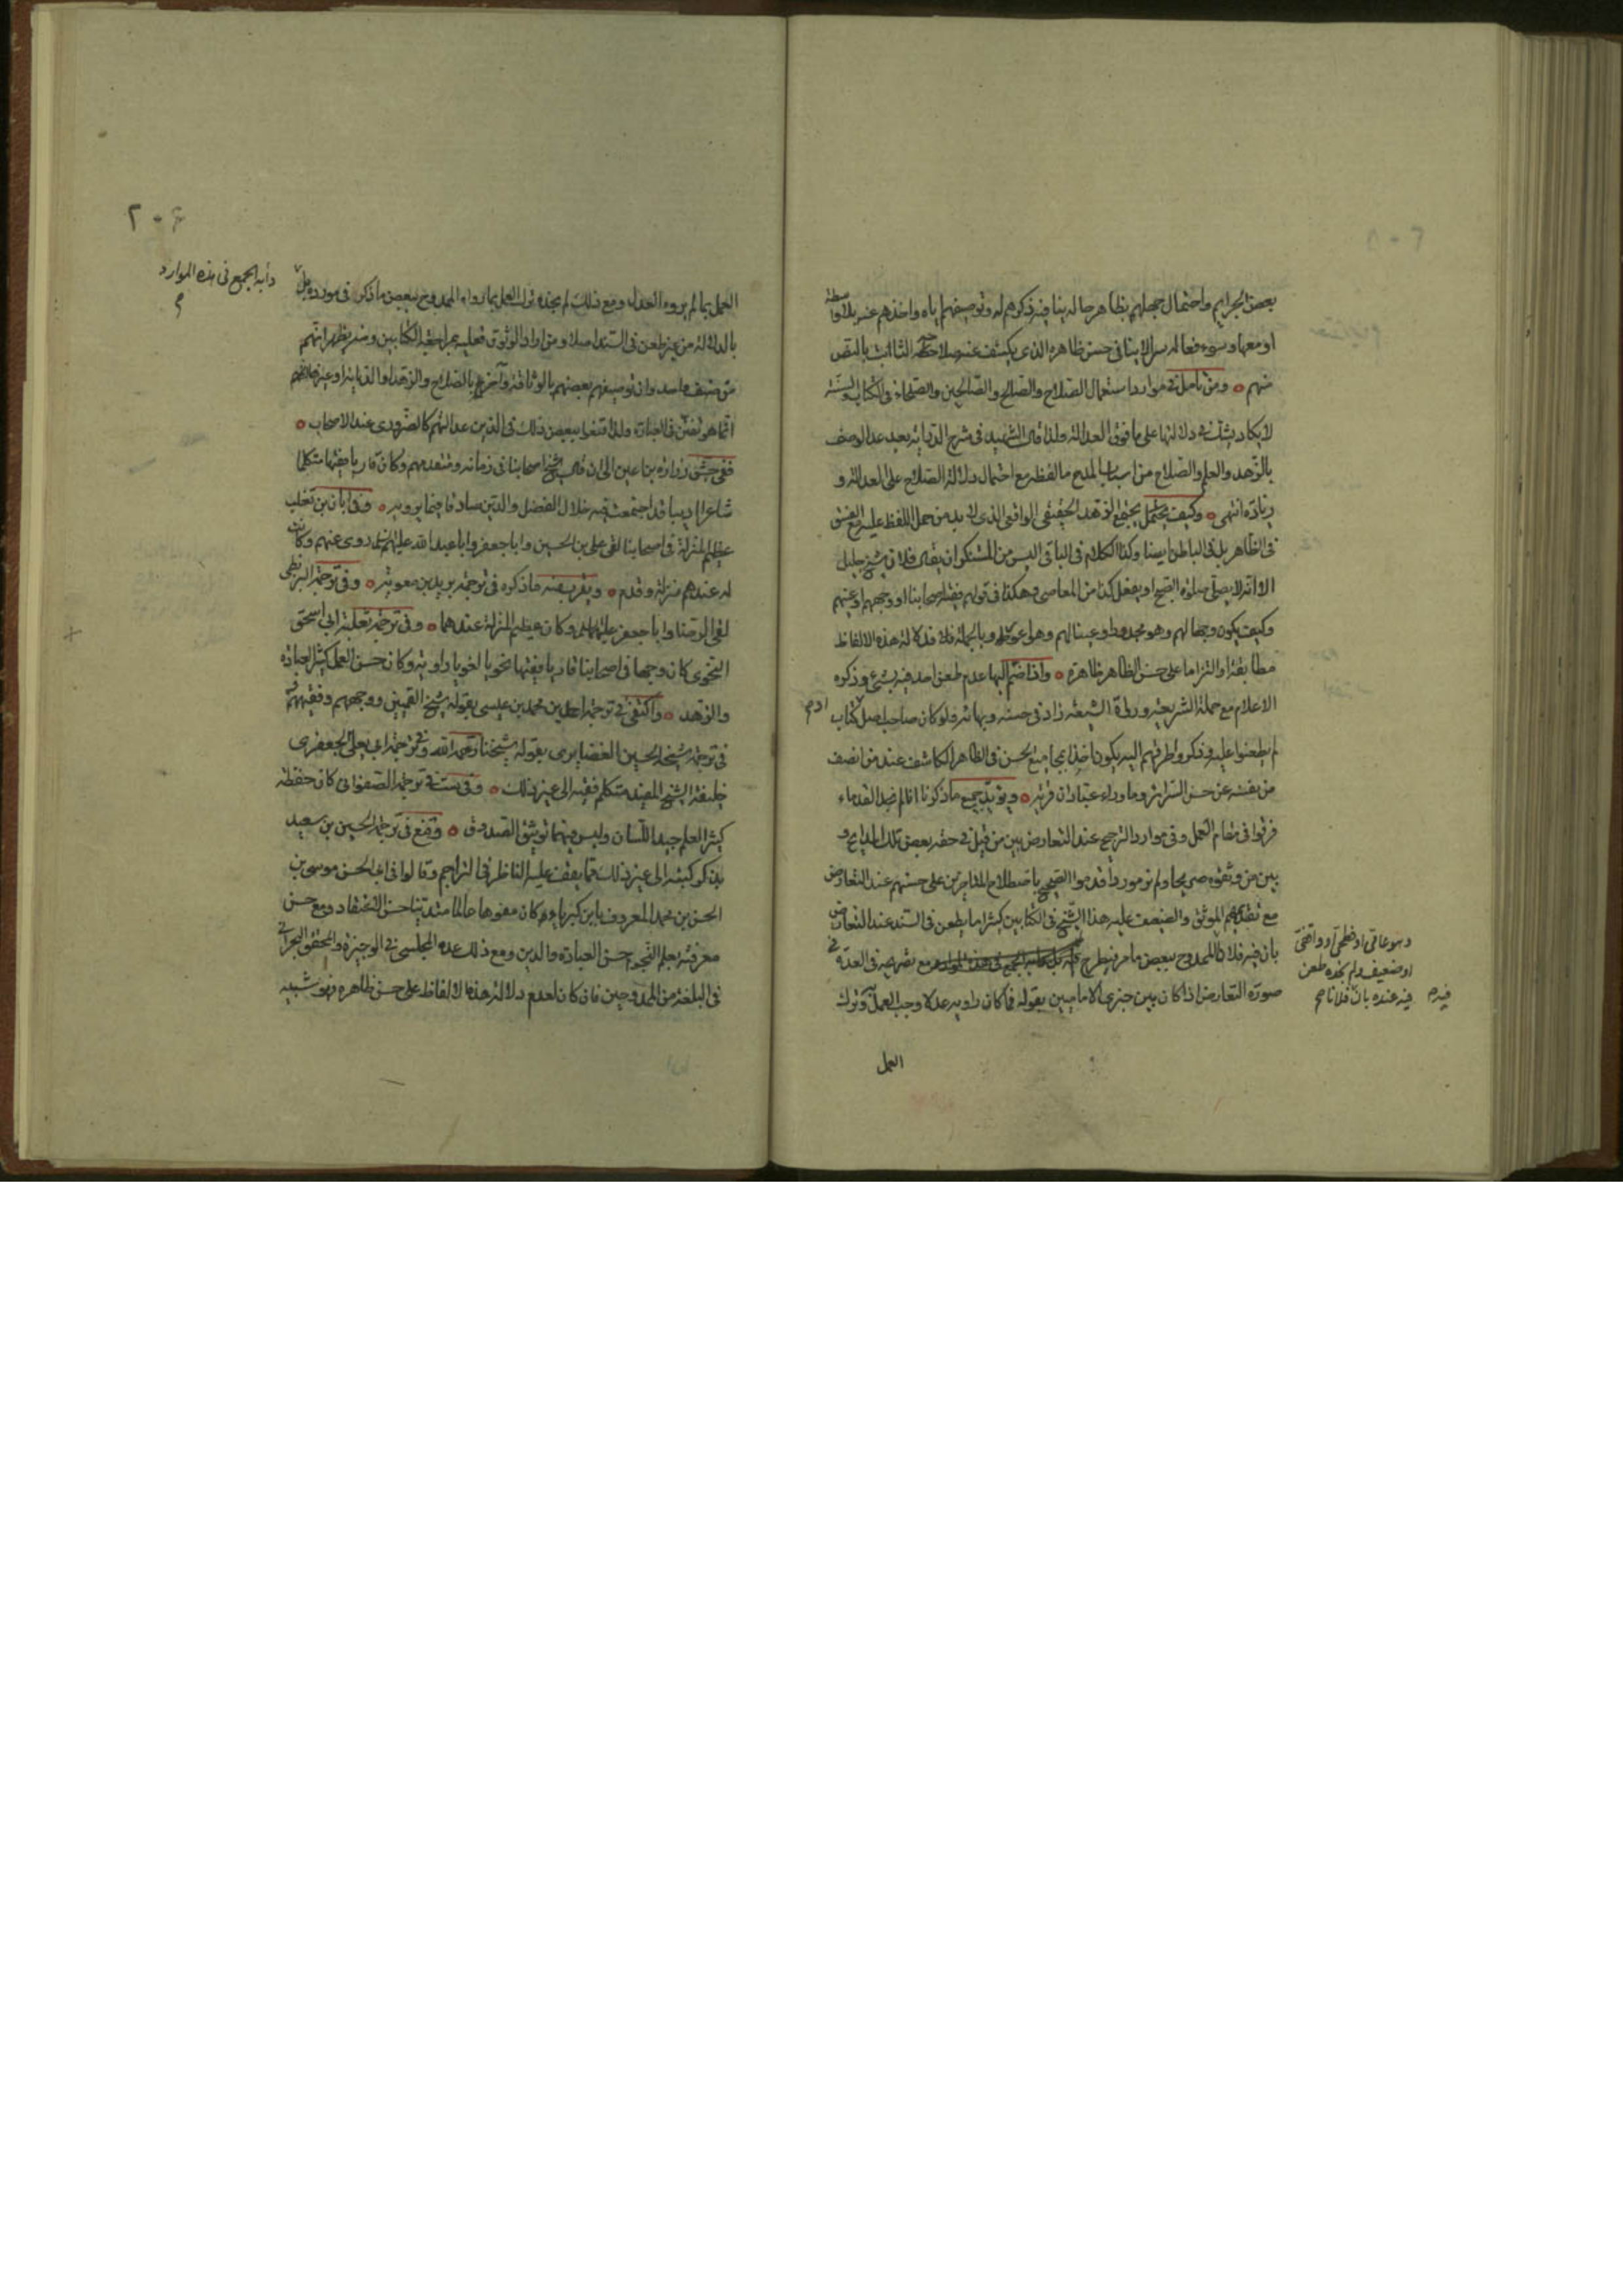 بعض الجرايم واحتمال جهلهم بظاهر حاله ينافيه ذكرهم له وتوصيفهم اياه واخذهم عنه بلا واسطة
او معها وسوء فعاله سرا لا ينافى حسن ظاهره الذى يكشف عنه صلاحه الثابت بالنص
منهم ومن تامل فى موارد استعمال الصلاح والصالح والصالحين والصلحاء فى الكتاب والسنة
لا يكاد يشك فى دلالتها على ما فوق العدالة ولذا قال الشهيد فى شرح الدراية بعد عد الوصف
بالزهد والعلم والصلاح من اسباب المدح ما لفظه مع احتمال دلالة الصلاح على العدالة و
زيادة انتهى وكيف يحتمل يجتمع الزهد الحقيقى الواقعى الذى لا بد من حمل اللفظ عليه مع الفسق
فى الظاهر بل فى الباطن ايضا وكذا الكلام فى الباقى اليس من المستنكر ان يقال فلان شيخ جليل
الا انه لا يصلى صلوة الصبح او يفعل كذا من المعاصى وهكذا فى قولهم فقيه اصحابنا او وجههم او عينهم
وكيف يكون وجها لهم وهو مجدود او عينا لهم وهو وبالجملة فلا دلالة هذه الالفاظ
مطابقة او التزاما على حسن الظاهر ظاهرة واذا انضم اليها عدم طعن احد فيه بشىء وذكره
الاعلام مع حملة الشريعة ورواة الشيعة زاد فى حسنه وبهائه ولو كان صاحب اصل او كتاب
لم يطعنوا عليه وذكروا طرقهم اليه يكون اخذا بمجامع الحسن فى الظاهر الكاشف عند من انصف
من نفسه عن حسن السرائر وما وراء عبادان قرية ويؤيد جميع ما ذكرنا انا لم نجد القدماء
فرقوا فى مقام العمل وفى موارد الترجيح عند التعارض بين من قيل فى حقه بعض تلك المدايح و
بين من وثقوه صريحا ولم نر موردا قدموا الصحيح باصطلاح المتاخرين على حسنهم عند التعارض
مع تقديمهم الموثق والضعيف عليه هذا الشيخ فى الكتابين كثيرا ما يطعن فى السند عند التعارض
بان فيه فلان وهو عامى او فطحى او واقفى
او ضعيف ولم نجده طعن
فيه عنده بان فلانا
الممدوح ببعض ما مر فيطرح مع تصريحه فى العدة فى
صورة التعارض اذا كان بين خبرى الاماميين بقوله فما كان راويه عدلا وجب العمل به وترك
العمل
٢٠٦
العمل بما لم يروه العدل ومع ذلك لم نجده ترك العمل بما رواه الممدوح ببعض ما ذكر فى مورده بل
دأبه الجمع فى هذه الموارد
بالدلالة من غير طعن فى السند اصلا ومن اراد الوثوق فعليه بمراجعة الكتابين ومنه يظهر انهم
اتما هو تفنن فى العبارة ولذا قنعوا ببعض ذلك فى الذين عدالتهم كالضرورى عند الاصحاب
ففى جش زرارة بن اعين الى ان قال شيخ اصحابنا فى زمانه ومتقدمهم وكان قاريا فقيها متكلما
شاعرا اديبا قد اجتمعت فيه خلال الفضل والدين صادقا فيما يرويه وفى ابان بن تغلب
عظيم المنزلة فى اصحابنا لقى على بن الحسين وابا جعفر وابا عبد الله عليهم السلام روى عنهم وكانت
له عندهم منزلة وقدم ويقرب منه ما ذكره فى ترجمة بريد بن معوية وفى ترجمة البزنطى
لقى الرضا وابا جعفر عليهما السلم وكان عظيم المنزلة عندهما وفى ترجمة ثعلبة ابى اسحق
النحوى كان وجها فى اصحابنا قاريا فقيها نحويا لغويا راوية وكان حسن العمل كثير العبادة
والزهد واكتفى فى ترجمة احمد بن محمد بن عيسى بقوله شيخ القميين ووجههم وفقيههم
فى ترجمة شيخه الحسين الغضايرى بقوله شيخنا رحمه الله وفى ترجمة ابى يعلى الجعفرى
خليفة الشيخ المفيد متكلم فقيه الى غير ذلك وفى ست فى ترجمة الصفوانى كان حفظة
كثير العلم جيد اللسان وليس فيهما توثيق الصدوق وقنع فى ترجمة الحسين بن سعيد
بذكر كتبه الى غير ذلك مما يقف عليه الناظر فى التراجم وقالوا فى ابى الحسن موسى بن
الحسن بن محمد المعروف بابن كبرياء كان مفوها عالما متدينا حسن الاعتقاد ومع حسن
معرفته بعلم النجوم حسن العبادة والدين ومع ذلك عده المجلسى فى الوجيزة والمحقق البحرانى
فى البلغة من الممدوحين فان كان لعدم دلالة هذه الالفاظ على حسن ظاهره فهو شبيه